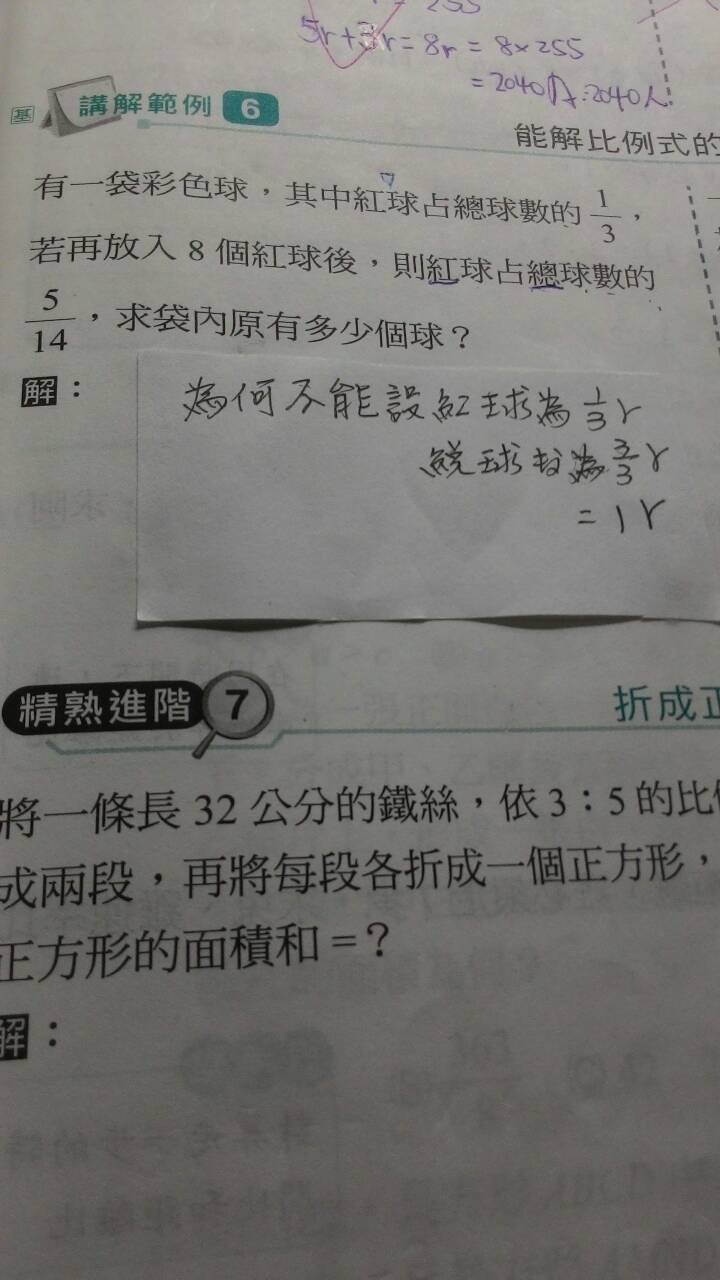 = 255
5r+3r=8r=8×255
=2040人 A:2040人
基 講解範例 6
能解比例式的
有一袋彩色球,其中紅球占總球數的 1/3,
若再放入 8 個紅球後,則紅球占總球數的
5/14,求袋內原有多少個球?
解:
為何不能設紅球為 1/3 r
總球數為 3/3 r
= 1r
精熟進階 7
折成正
將一條長 32 公分的鐵絲,依 3:5 的比
成兩段,再將每段各折成一個正方形,
正方形的面積和=?
解: